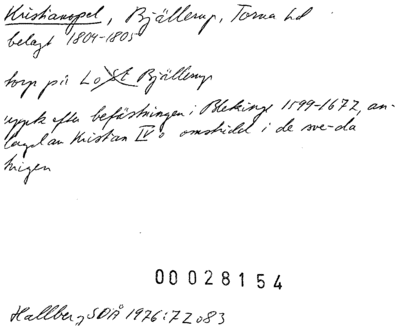 Kristianopel, Bjällerup, Torna hd
belagt 1804-1805
torp på Lo St Bjällerup
uppk efter befästningen i Blekinge 1599-1677, an-
lagd av Kristian IV o omstridd i de sv-da
krigen
00028154
Hallberg, SOÅ 1976:72 o 83